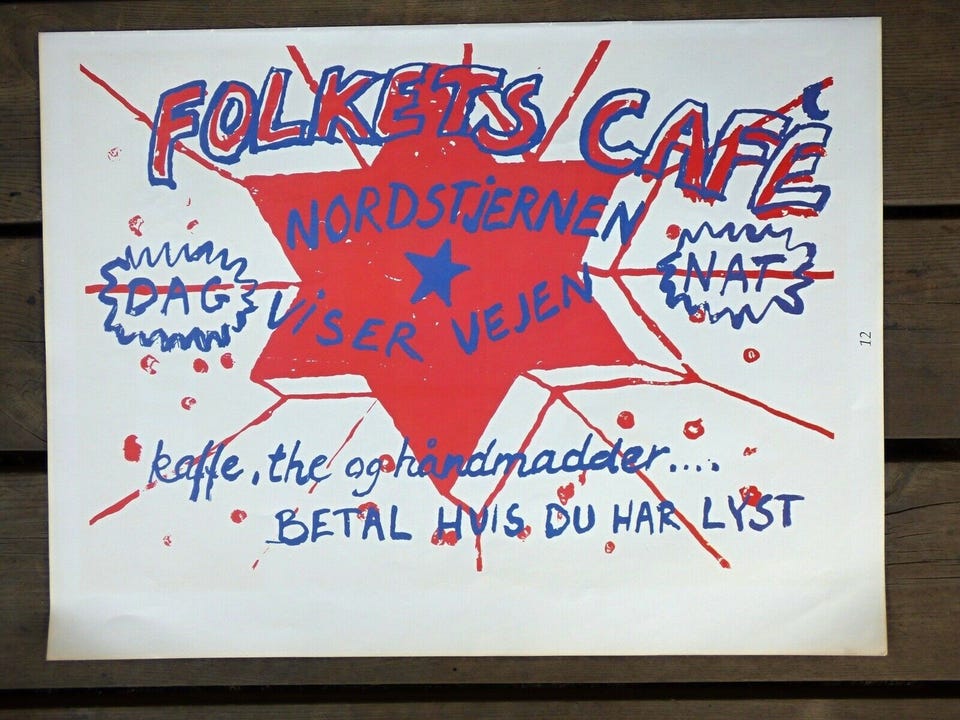 FOLKETS CAFÈ
NORDSTJERNEN
DAG
NAT
VISER VEJEN
kaffe, the og håndmadder....
BETAL HVIS DU HAR LYST
12